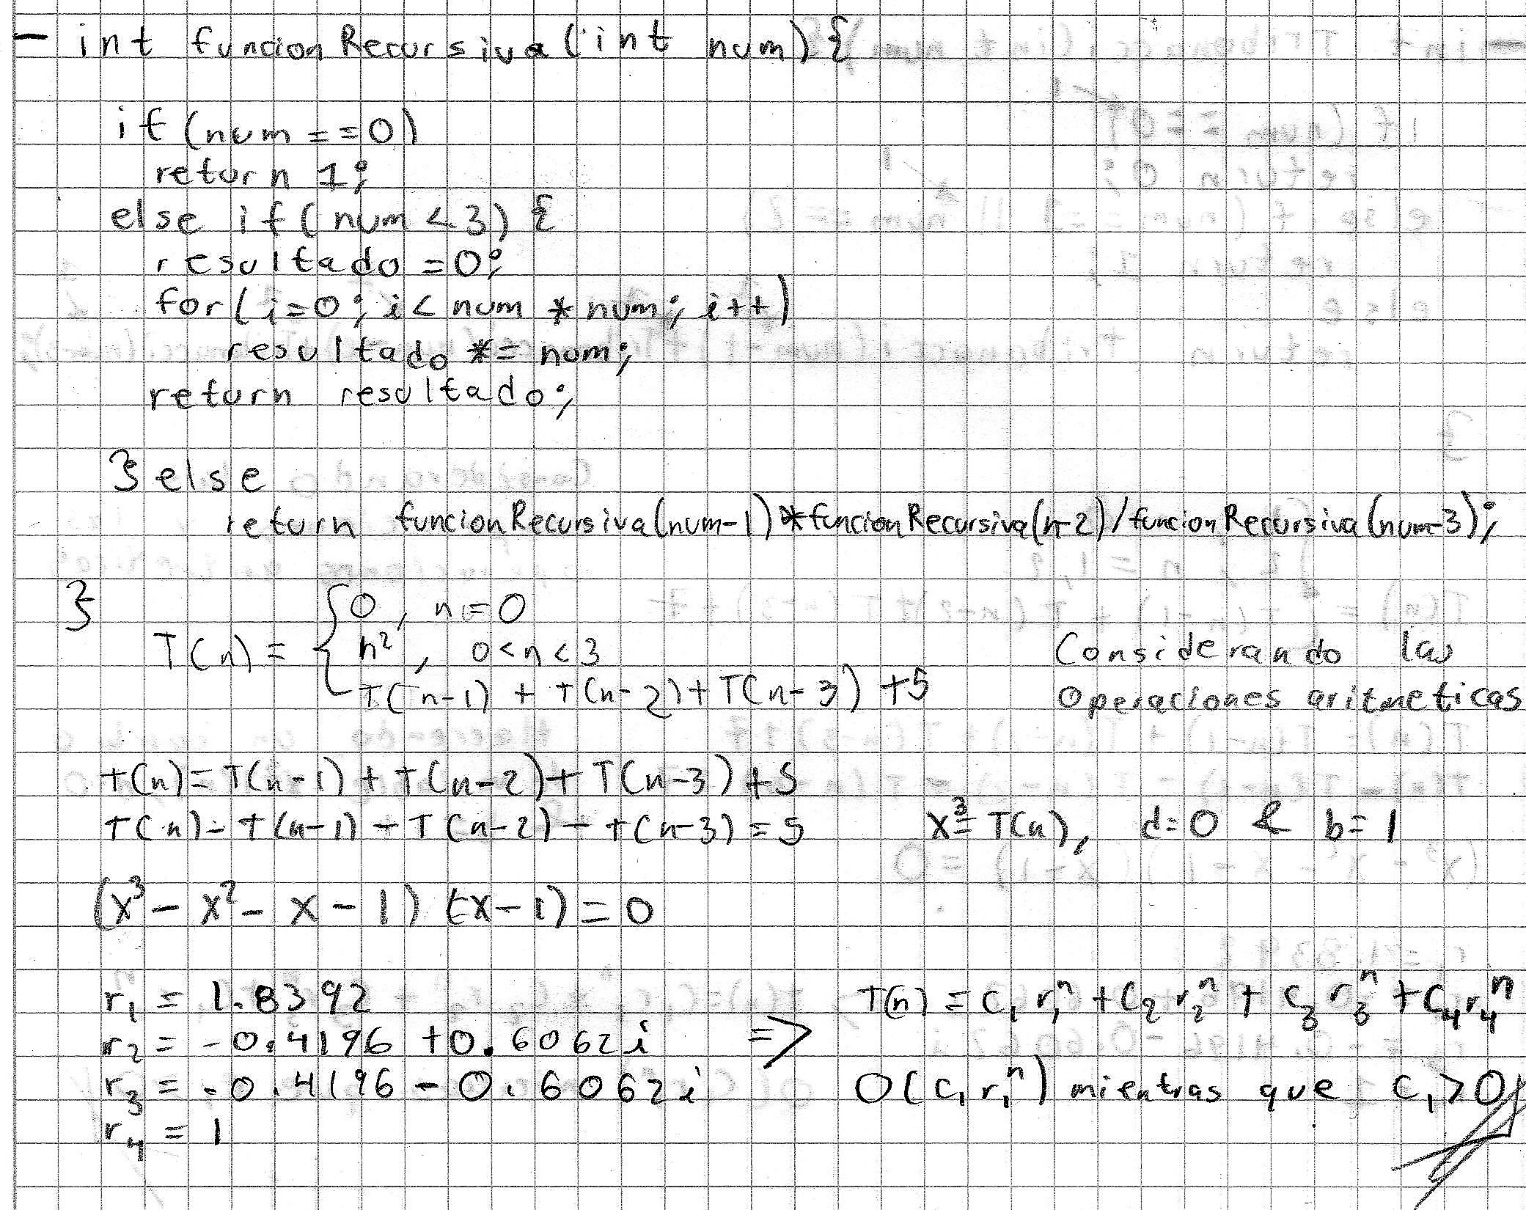 - int funcionRecursiva(int num){
if(num==0)
return 1;
else if(num<3){
resultado=0;
for(i=0;i<num*num;i++)
resultado*=num;
return resultado;
}else
return funcionRecursiva(num-1)*funcionRecursiva(n-2)/funcionRecursiva(num-3);
}
T(n)= { 0, n=0
n², 0<n<3
T(n-1)+T(n-2)+T(n-3)+5
Considerando las
operaciones aritmeticas
T(n)=T(n-1)+T(n-2)+T(n-3)+5
T(n)-T(n-1)-T(n-2)-T(n-3)=5 x³=T(n), d=0 & b=1
(x³-x²-x-1)(x-1)=0
r₁=1.8392
r₂=-0.4196+0.6062i
r₃=-0.4196-0.6062i
r₄=1
=> T(n)=c₁r₁ⁿ+c₂r₂ⁿ+c₃r₃ⁿ+c₄r₄ⁿ
O(c₁r₁ⁿ) mientras que c₁>0